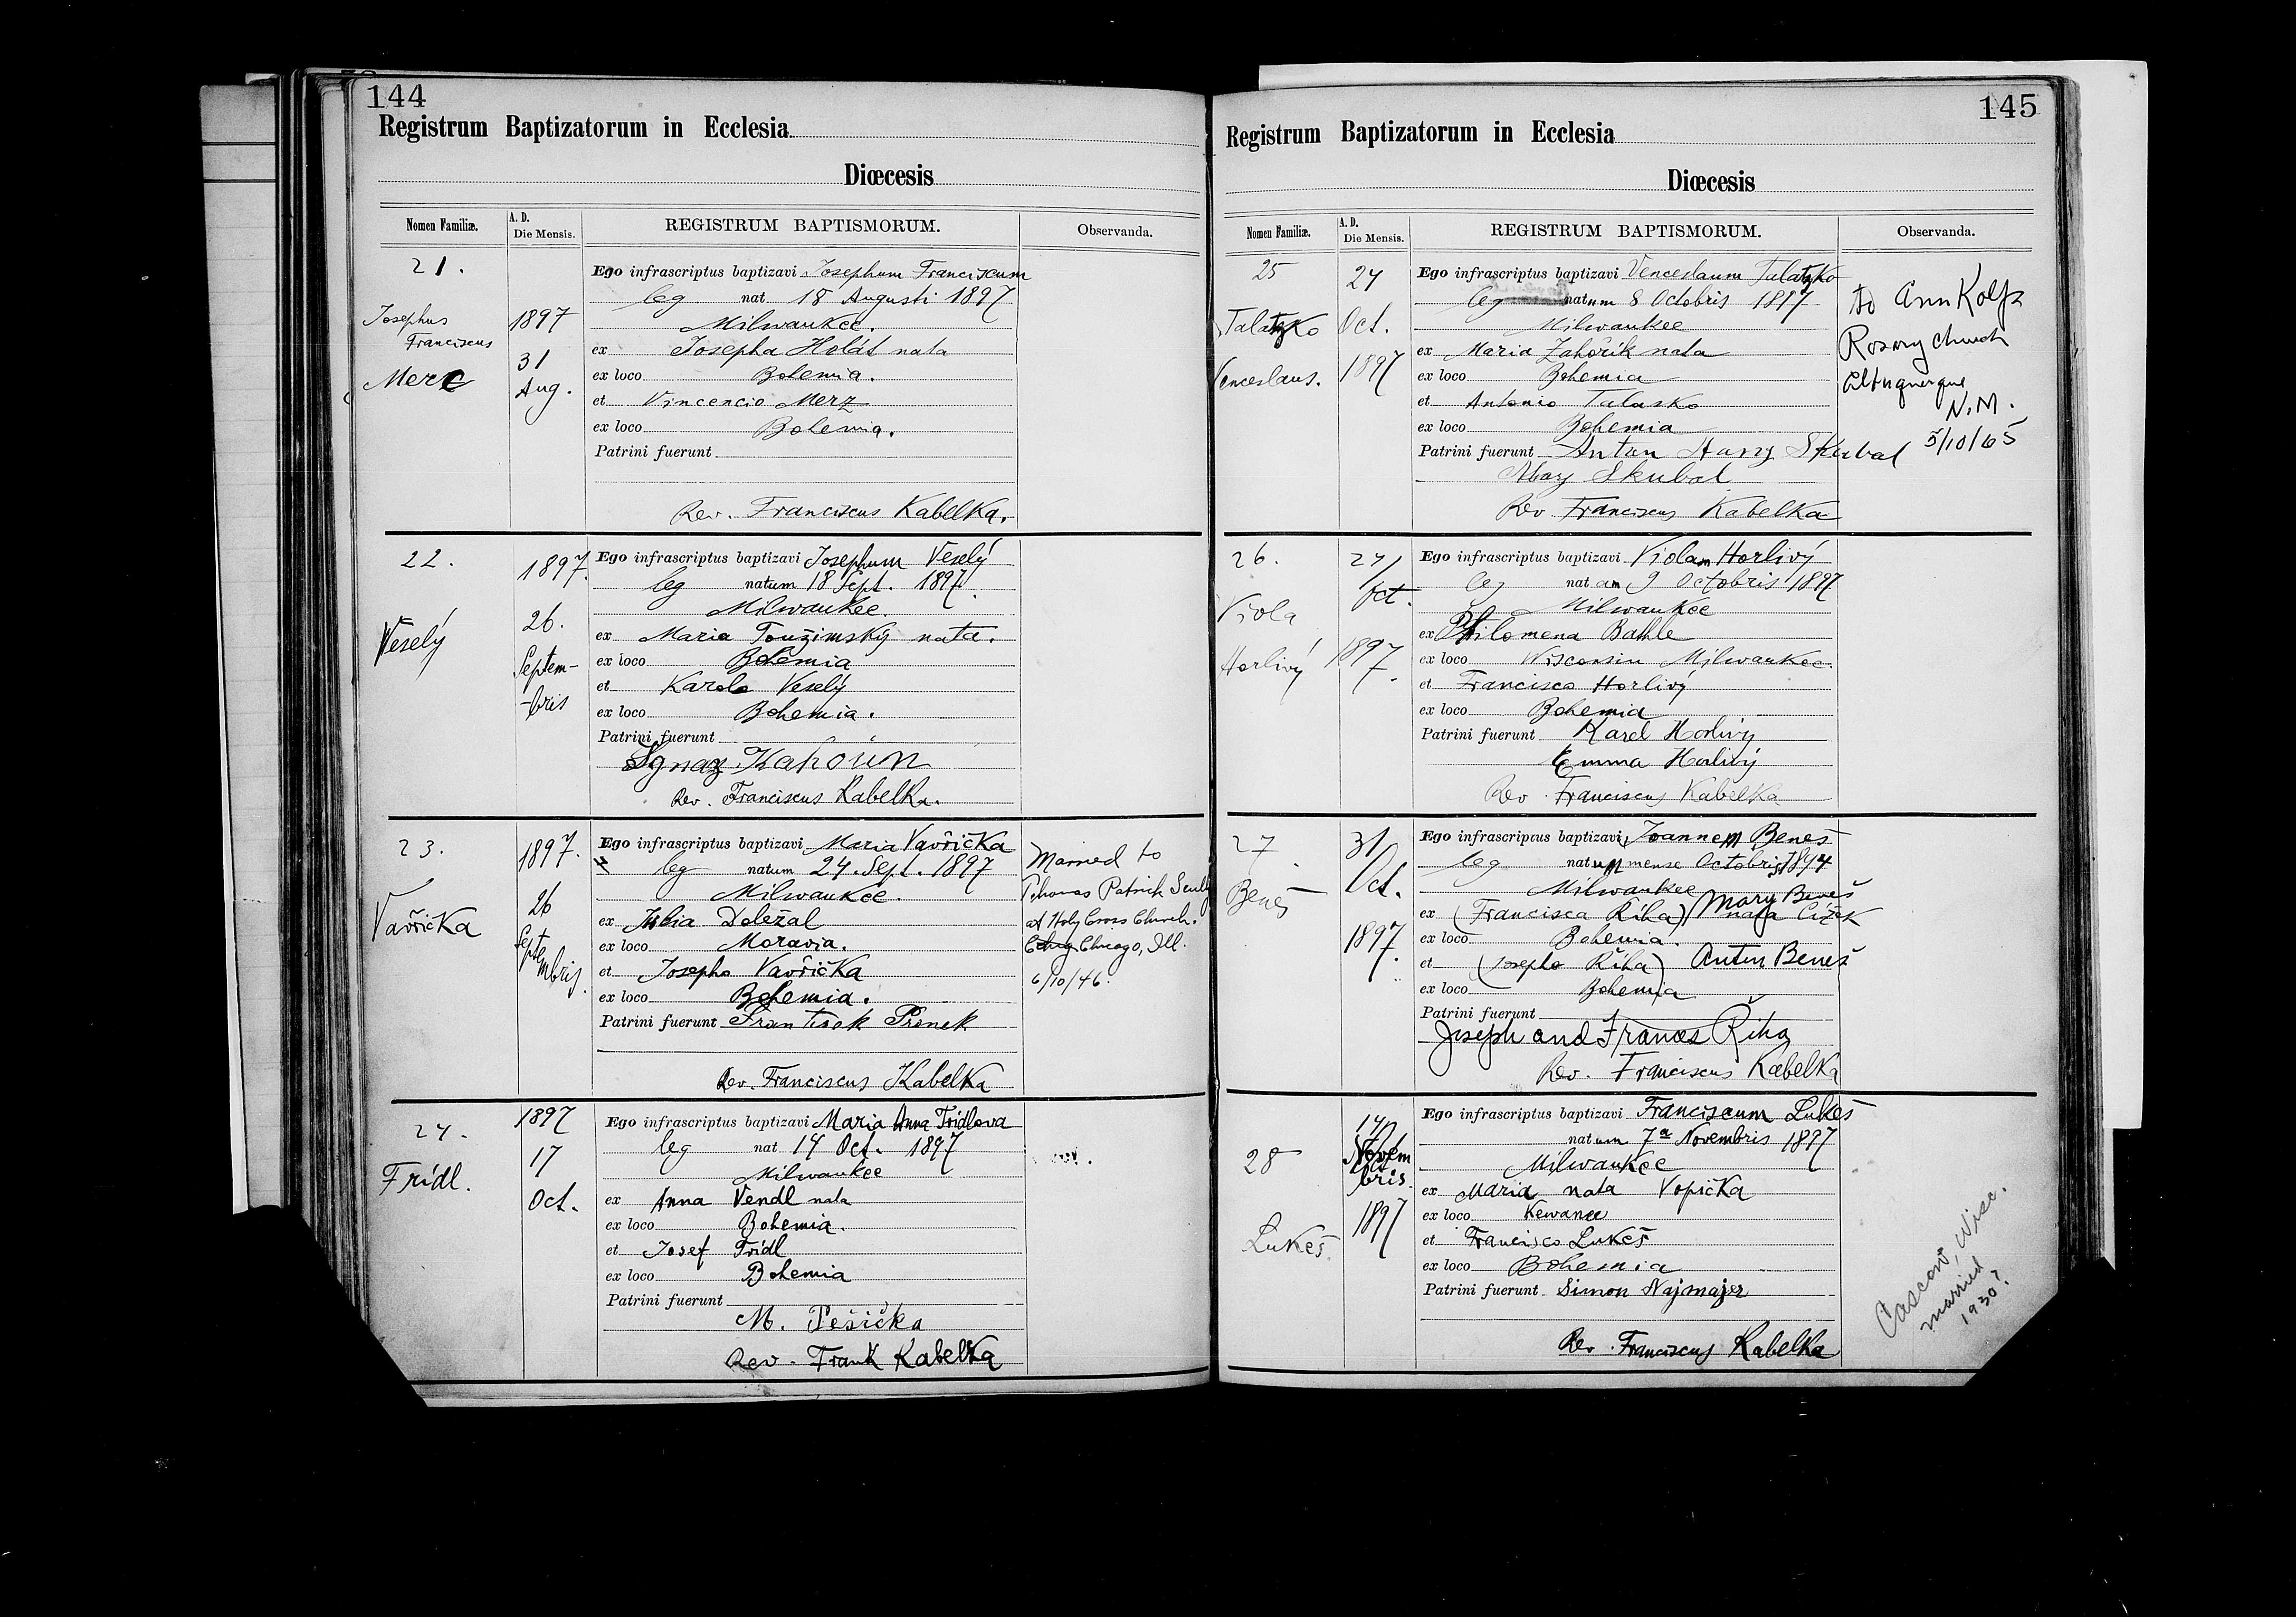 144
Registrum Baptizatorum in Ecclesia
Diœcesis
Nomen Familiæ.
A. D.
Die Mensis.
REGISTRUM BAPTISMORUM.
Observanda.
21.
Josephus
Franciscus
Merc
1897
31
Aug.
Ego infrascriptus baptizavi Josephum Franciscum
leg nat 18 Augusti 1897
Milwaukee.
ex Josepha Holát nata
ex loco Bohemia.
et Vincencio Merz
ex loco Bohemia.
Patrini fuerunt
Rev. Franciscus Kabelka.
22.
Veselý
1897.
26.
Septem-
-bris
Ego infrascriptus baptizavi Josephum Veselý
leg natum 18 Sept. 1897.
Milwaukee.
ex Maria Toužimský nata.
ex loco Bohemia
et Karolo Veselý
ex loco Bohemia.
Patrini fuerunt
Ignaz Kahoun
Rev. Franciscus Kabelka.
23.
Vavřička
1897.
26
Septembris.
Ego infrascriptus baptizavi Maria Vavřička
leg natum 24. Sept. 1897
Milwaukee.
ex Julia Doležal
ex loco Moravia.
et Josepho Vavřička
ex loco Bohemia.
Patrini fuerunt František Pronek
Rev. Franciscus Kabelka
Married to
Thomas Patrick Scully
at Holy Cross Church.
Chicago, Ill.
6/10/46.
24.
Frídl.
1897
17
Oct.
Ego infrascriptus baptizavi Maria Anna Frídlova
leg nat 14 Oct. 1897
Milwaukee
ex Anna Vendl nata
ex loco Bohemia.
et Josef Frídl
ex loco Bohemia
Patrini fuerunt
M. Pešička
Rev. Frank Kabelka
145
Registrum Baptizatorum in Ecclesia
Diœcesis
Nomen Familiæ.
A. D.
Die Mensis.
REGISTRUM BAPTISMORUM.
Observanda.
25
Talatzko
Venceslaus.
24
Oct.
1897
Ego infrascriptus baptizavi Venceslaum Talatzko
leg natum 8 Octobris 1897
Milwaukee
ex Maria Zahořík nata
ex loco Bohemia
et Antonio Talasko
ex loco Bohemia
Patrini fuerunt Antun Harry Skubal
May Skubal
Rev Franciscus Kabelka
to Ann Kolfs
Rosary Church
Albuquerque
N.M.
5/10/65
26.
Viola
Horlivý
24
Oct.
1897.
Ego infrascriptus baptizavi Violam Horlivý
leg natam 9 Octobris 1897
Milwaukee
ex Philomena Bahle
ex loco Wisconsin Milwaukee.
et Francisco Horlivý
ex loco Bohemia
Patrini fuerunt Karel Horlivý
Emma Horlivý
Rev. Franciscus Kabelka
27.
Beneš
31
Oct.
1897.
Ego infrascriptus baptizavi Joannem Beneš
leg natum mense Octobris 1894
Milwaukee
Mary Beneš
ex (Francisca Říha) nata Čížek
ex loco Bohemia.
et (Josepho Říha) Antun Beneš
ex loco Bohemia
Patrini fuerunt
Joseph and Frances Říha
Rev. Franciscus Kabelka
28
Lukeš
14
Novem
bris.
1897
Ego infrascriptus baptizavi Franciscum Lukeš
natum 7ª Novembris 1897
Milwaukee
ex Maria nata Vopička
ex loco Kewanee
et Francisco Lukeš
ex loco Bohemia
Patrini fuerunt Simon Najmajer
Rev. Franciscus Kabelka
Cascow, Wisc.
married
1930?